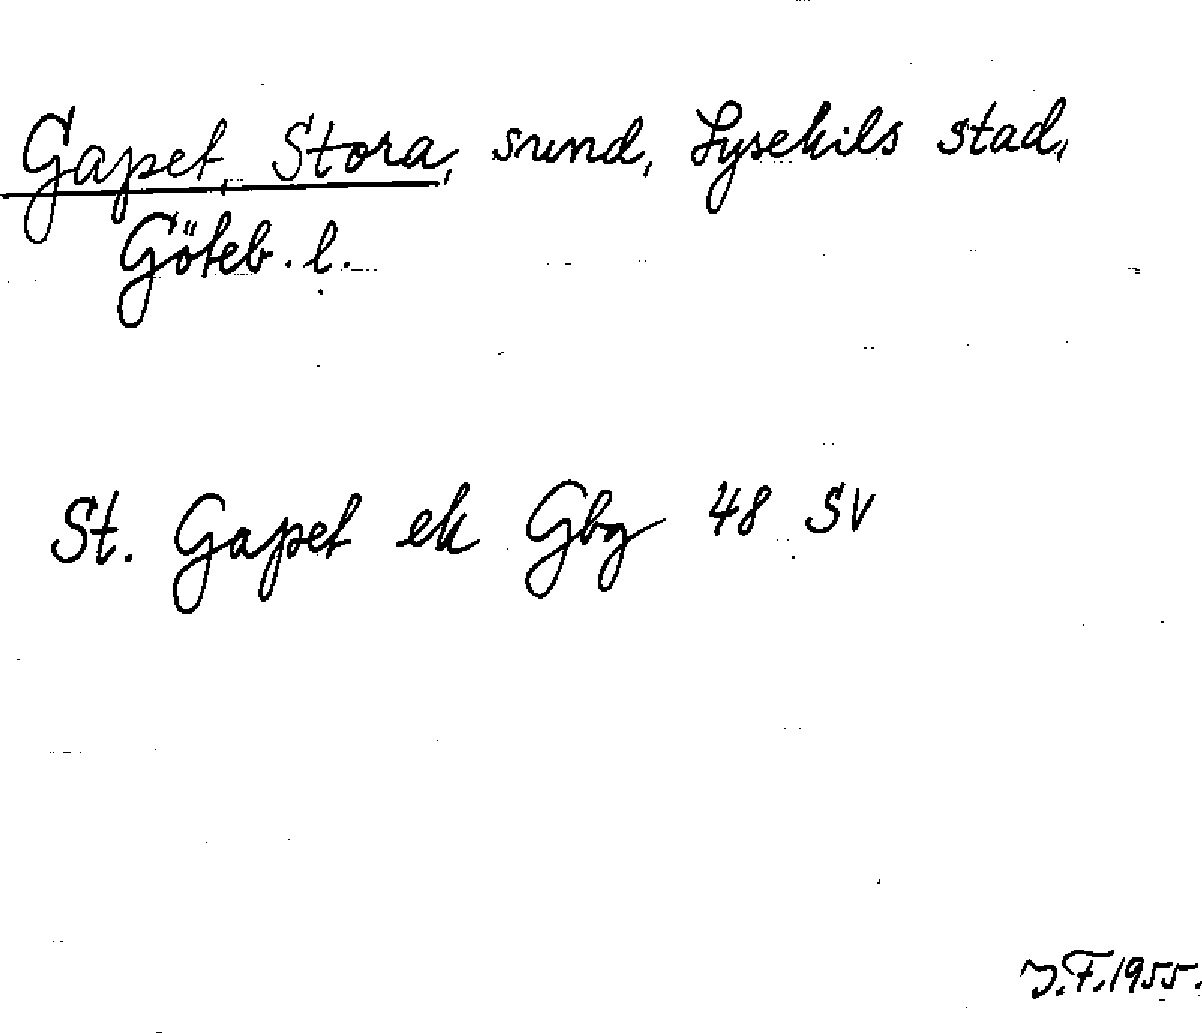 Gapet, Stora, sund, Lysekils stad,
Göteb. l.
St. Gapet ek Gbg 48 SV
J.F.1955.